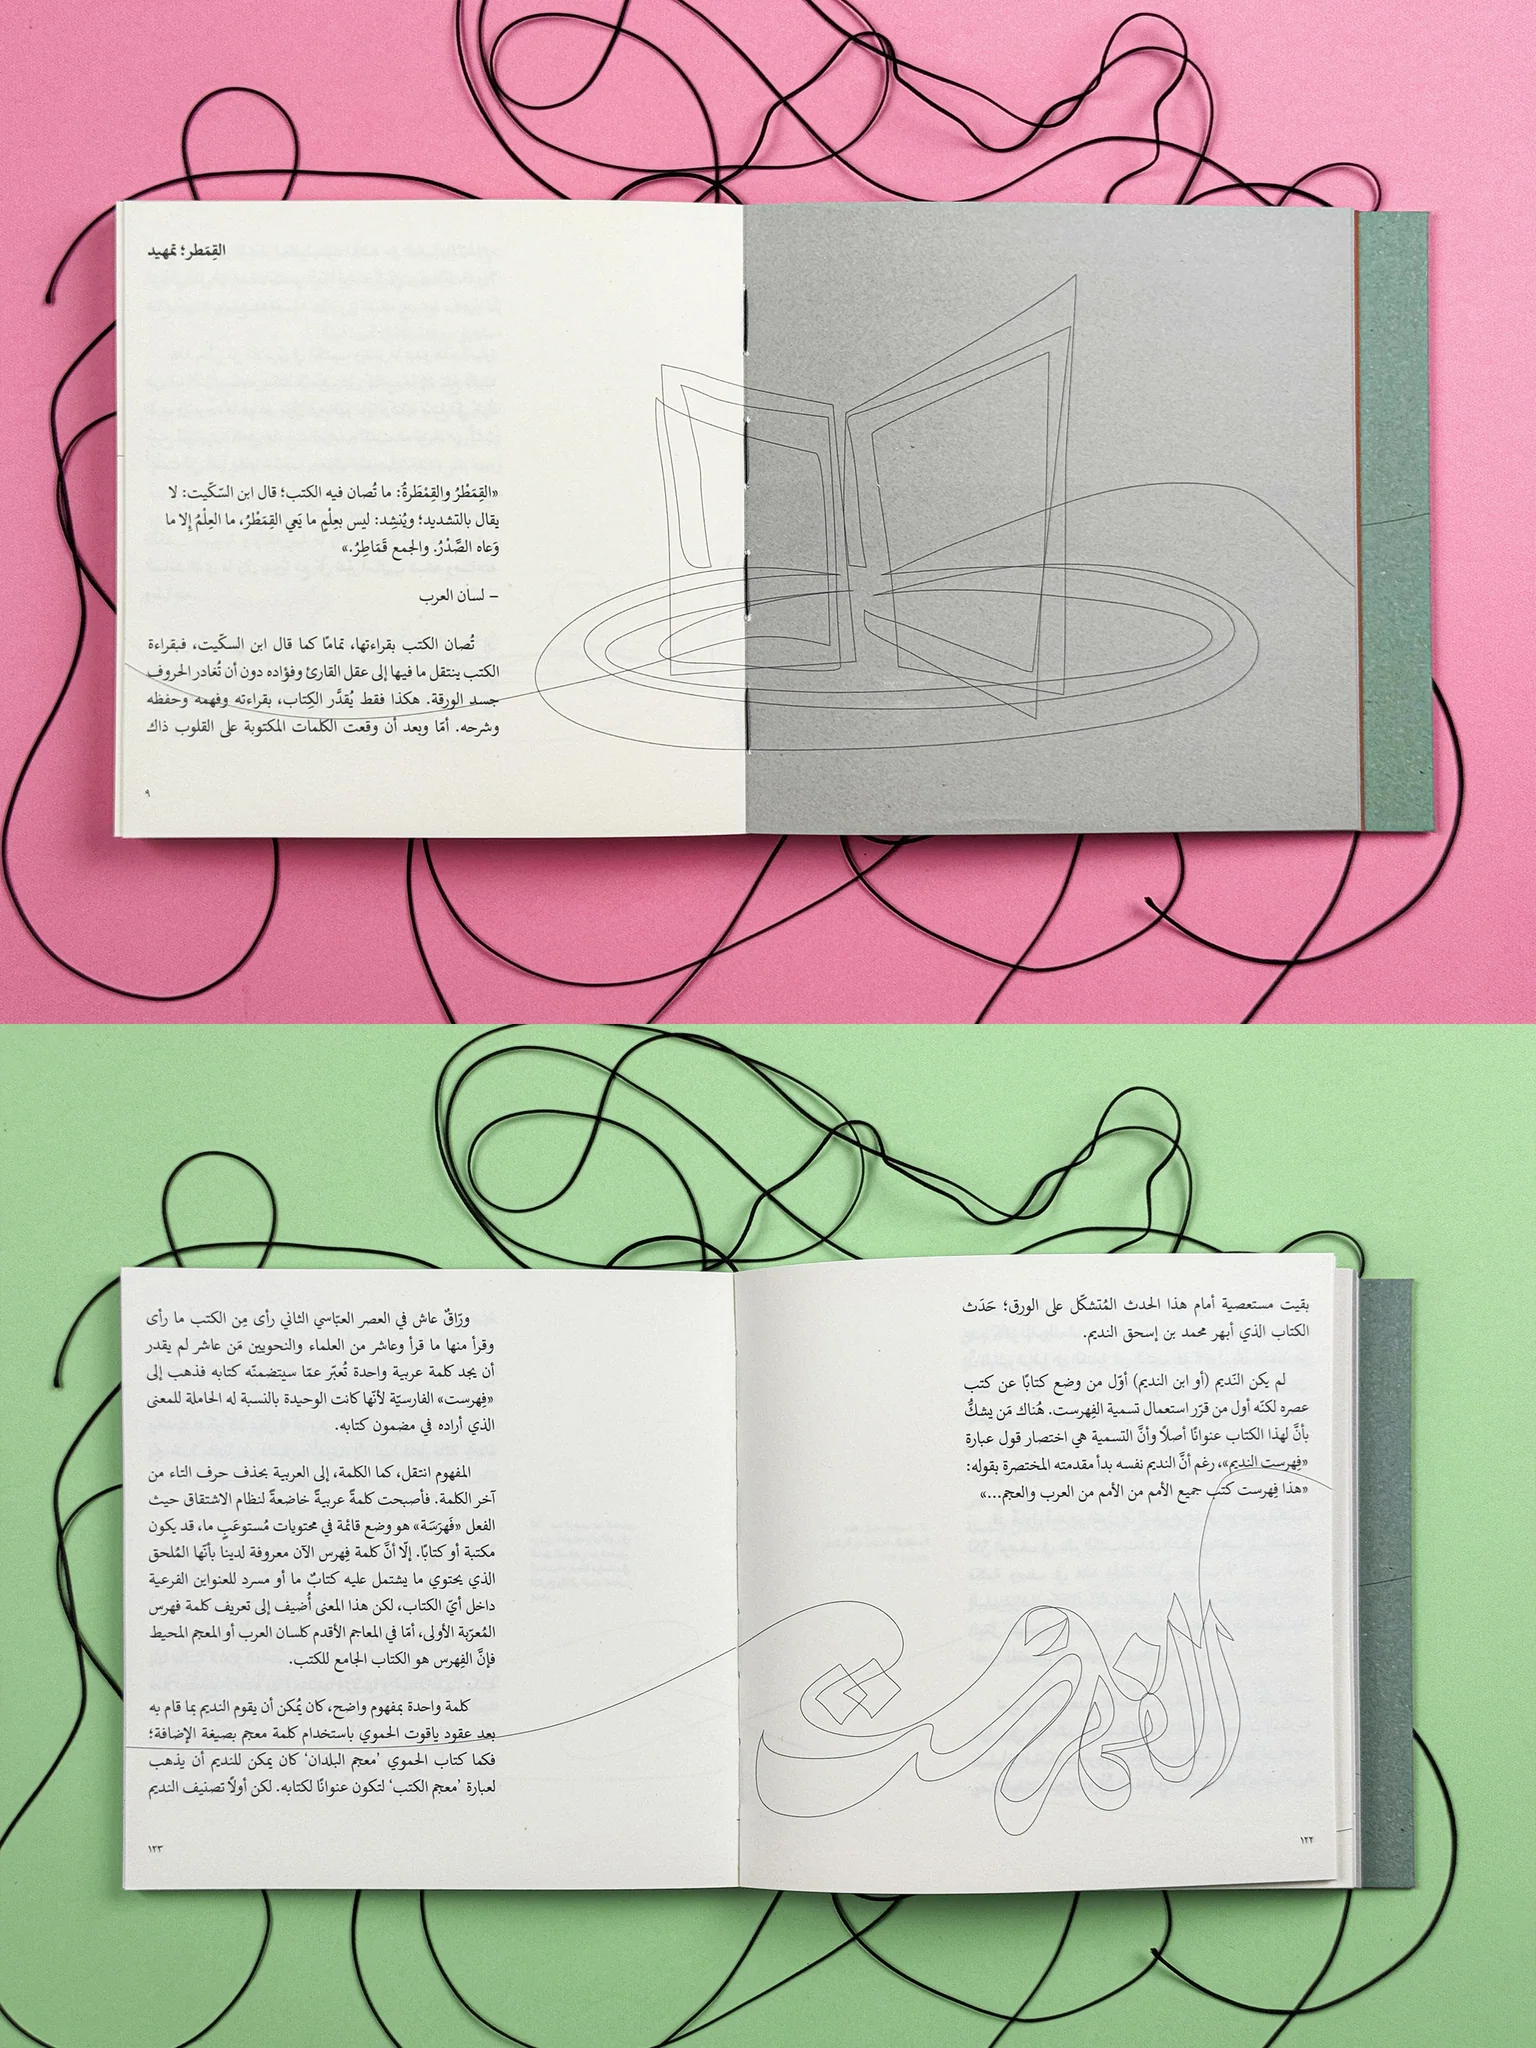 القِمَطر؛ تمهيد
«القِمَطْرُ والقِمْطَرةُ: ما تُصان فيه الكتب؛ قال ابن السّكّيت: لا
يقال بالتشديد؛ ويُنشِد: ليس بعِلْمٍ ما يَعي القِمَطْرُ، ما العِلْمُ إلا ما
وَعاه الصَّدْرُ. والجمع قَمَاطِرُ.»
– لسان العرب
تُصان الكتب بقراءتها، تمامًا كما قال ابن السكّيت، فبقراءة
الكتب ينتقل ما فيها إلى عقل القارئ وفؤاده دون أن تُغادر الحروف
جسد الورقة. هكذا فقط يُقدَّر الكِتاب، بقراءته وفهمه وحفظه
وشرحه. أمّا وبعد أن وقعت الكلمات المكتوبة على القلوب ذاك
٩
بقيت مستعصية أمام هذا الحدث المُتشكّل على الورق؛ حَدَث
الكتاب الذي أبهر محمد بن إسحق النديم.
لم يكن النّديم (أو ابن النديم) أوّل من وضع كتابًا عن كتب
عصره لكنّه أول من قرّر استعمال تسمية الفِهرست. هُناك مَن يشكُّ
بأنَّ لهذا الكتاب عنوانًا أصلًا وأنَّ التسمية هي اختصار قول عبارة
«فِهرست النديم»، رغم أنَّ النديم نفسه بدأ مقدمته المختصرة بقوله:
«هذا فِهرست كتب جميع الأمم من الأمم من العرب والعجم...»
الفهرست
١٢٢
ورّاقٌ عاش في العصر العبّاسي الثاني رأى مِن الكتب ما رأى
وقرأ منها ما قرأ وعاشر من العلماء والنحويين مَن عاشر لم يقدر
أن يجد كلمة عربية واحدة تُعبّر عمّا سيتضمنّه كتابه فذهب إلى
«فِهرست» الفارسيّة لأنّها كانت الوحيدة بالنسبة له الحاملة للمعنى
الذي أراده في مضمون كتابه.
المفهوم انتقل، كما الكلمة، إلى العربية بحذف حرف التاء من
آخر الكلمة. فأصبحت كلمةً عربيةً خاضعةً لنظام الاشتقاق حيث
الفعل «فَهرَسَة» هو وضع قائمة في محتويات مُستوعَبٍ ما، قد يكون
مكتبة أو كتابًا. إلّا أنَّ كلمة فِهرس الآن معروفة لدينا بأنّها المُلحق
الذي يحتوي ما يشتمل عليه كتابٌ ما أو مسرد للعنواين الفرعية
داخل أيّ الكتاب، لكن هذا المعنى أُضيف إلى تعريف كلمة فهرس
المُعرّبة الأولى، أمّا في المعاجم الأقدم كلسان العرب أو المعجم المحيط
فإنَّ الفِهرس هو الكتاب الجامع للكتب.
كلمة واحدة بمفهوم واضح، كان يُمكن أن يقوم النديم بما قام به
بعد عقود ياقوت الحموي باستخدام كلمة معجم بصيغة الإضافة؛
فكما كتاب الحموي ‘معجم البلدان‘ كان يمكن للنديم أن يذهب
لعبارة ‘معجم الكتب‘ لتكون عنوانًا لكتابه. لكن أولاً تصنيف النديم
١٢٣